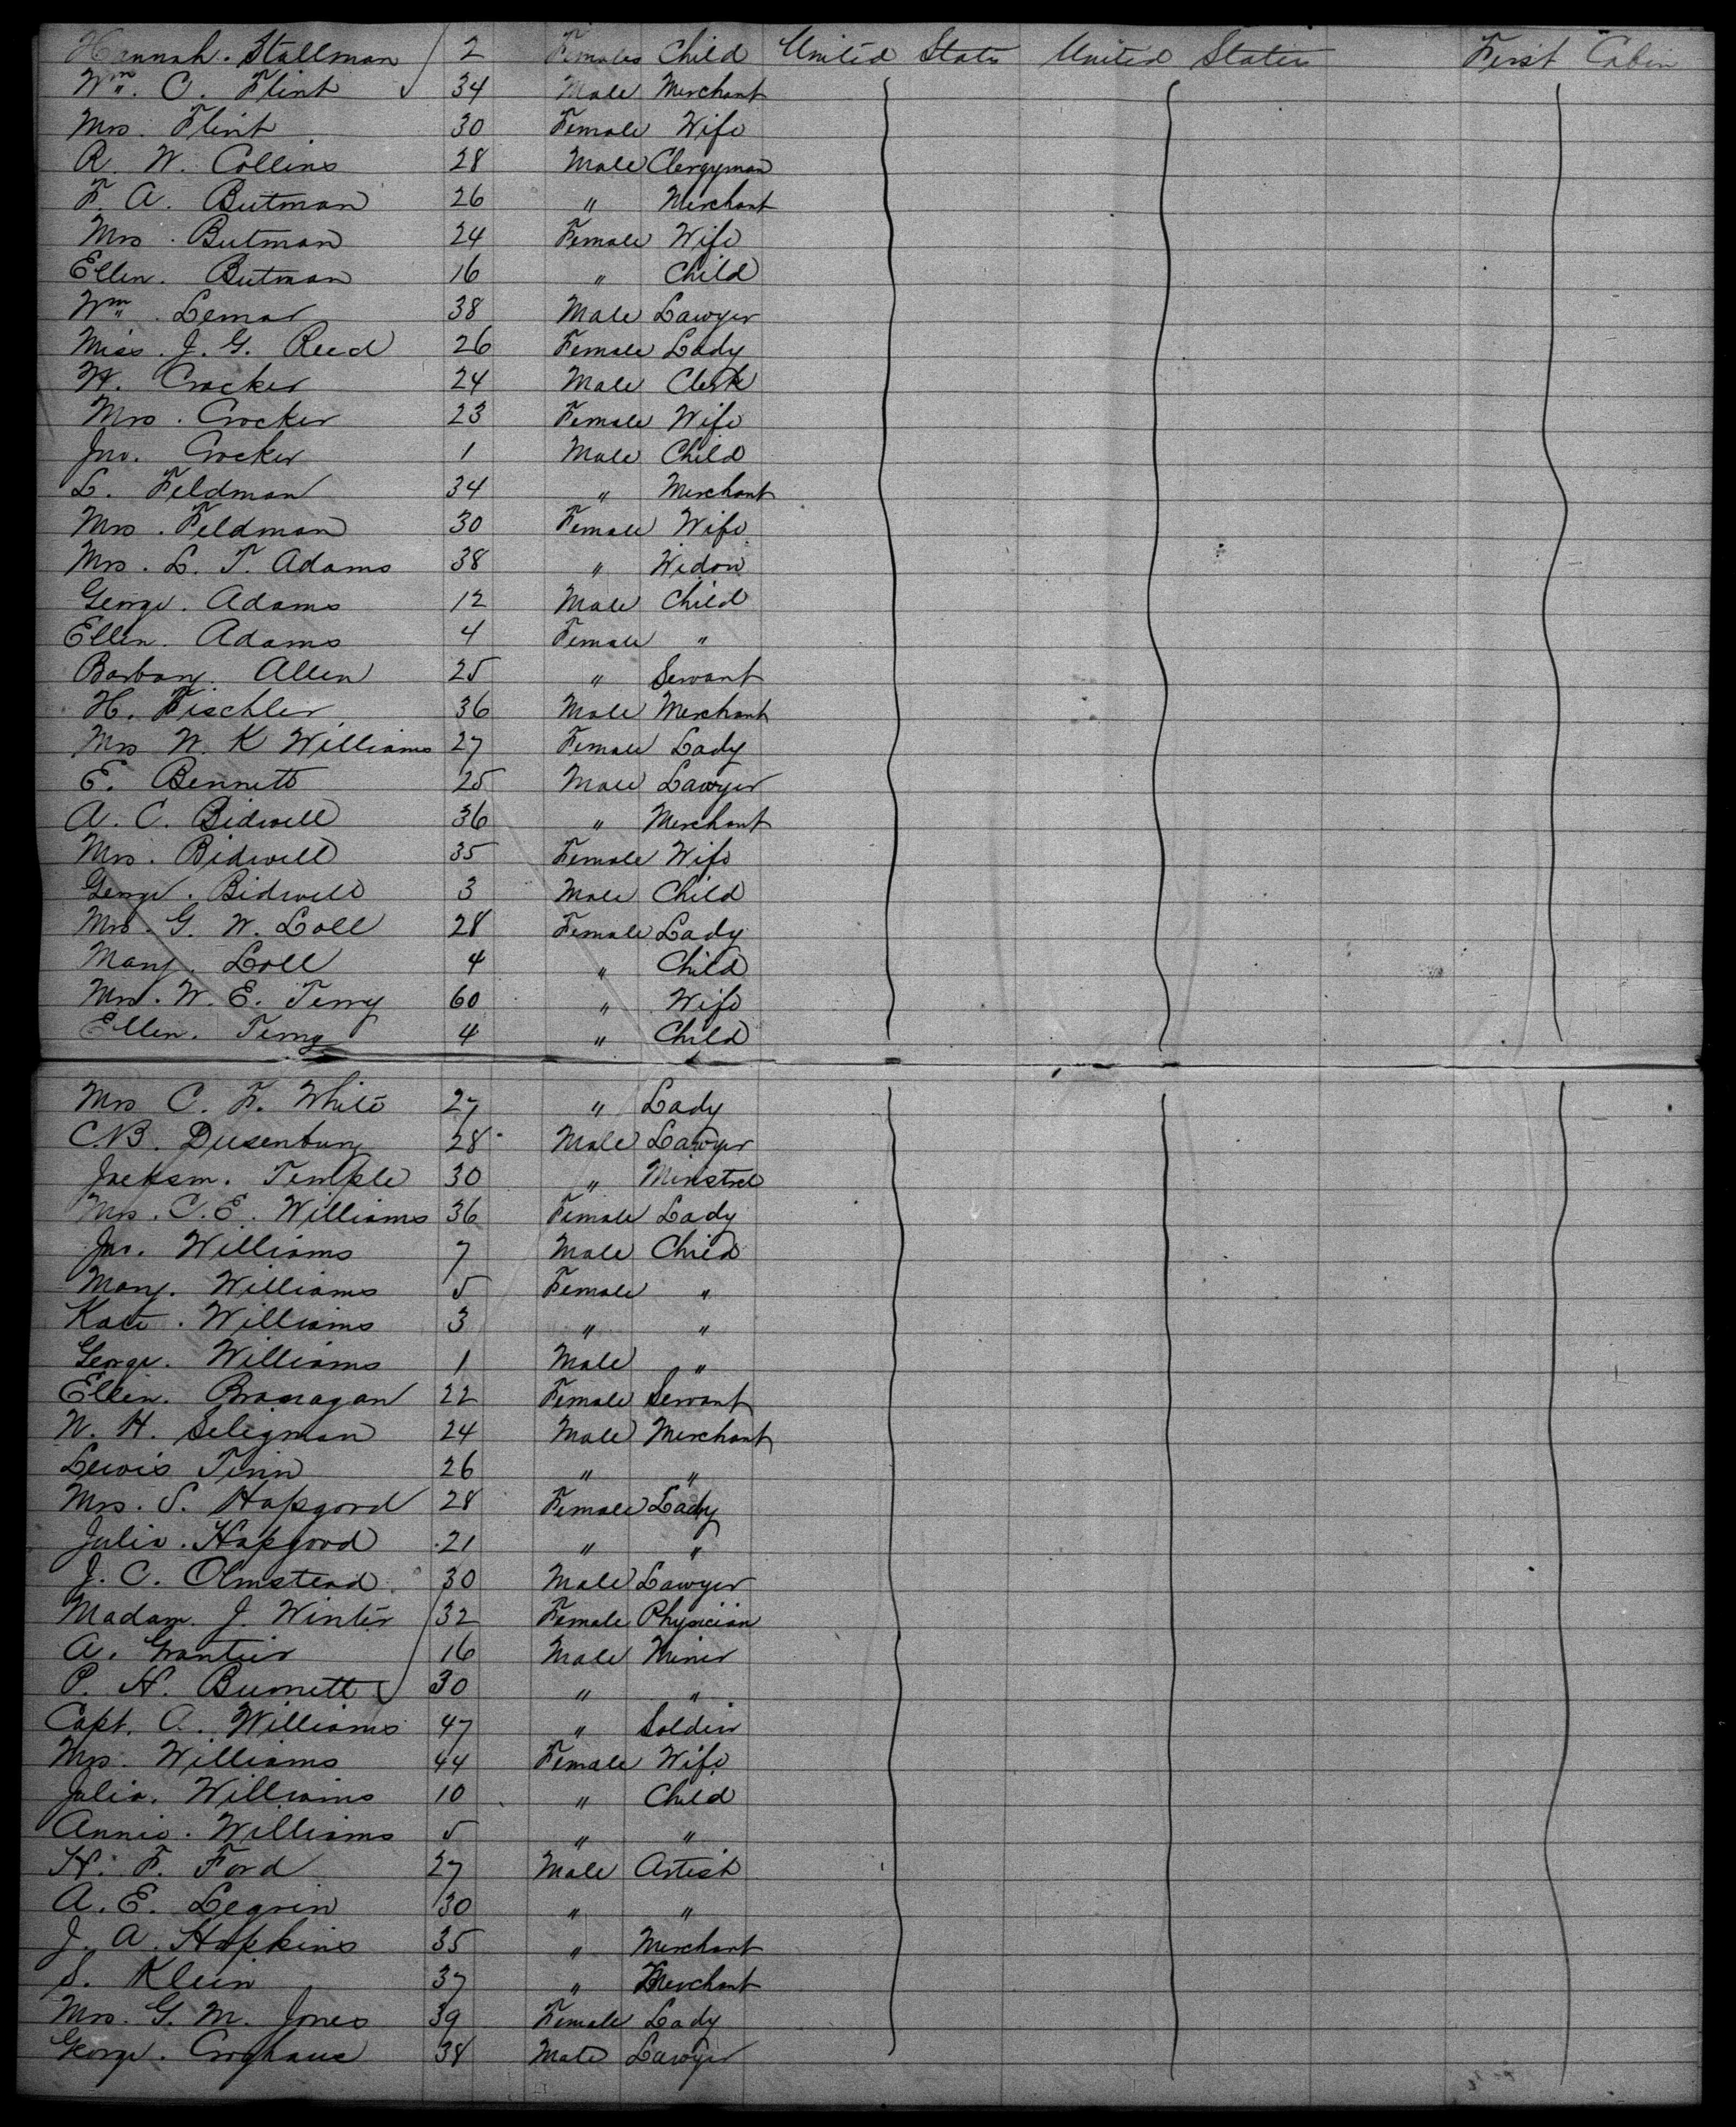 Hannah. Stallman 2 Females Child United States United States First Cabin
Wm. C. Flint 34 Male Merchant
Mrs. Flint 30 Female Wife
R. W. Collins 28 Male Clergyman
F. A. Butman 26 " Merchant
Mrs. Butman 24 Female Wife
Ellen. Butman 16 " Child
Wm. Lemar 38 Male Lawyer
Miss. J. G. Reed 26 Female Lady
H. Crocker 24 Male Clerk
Mrs. Crocker 23 Female Wife
Jno. Crocker 1 Male Child
L. Feldman 34 " Merchant
Mrs. Feldman 30 Female Wife
Mrs. L. T. Adams 38 " Widow
George. Adams 12 Male Child
Ellen. Adams 4 Female "
Barbary. Allen 25 " Servant
H. Fischler 36 Male Merchant
Mrs W. K Williams 27 Female Lady
E. Bennett 25 Male Lawyer
A. C. Bidwell 36 " Merchant
Mrs. Bidwell 35 Female Wife
George. Bidwell 3 Male Child
Mrs. G. W. Loll 28 Female Lady
Mary. Loll 4 " Child
Mrs. W. E. Terry 60 " Wife
Ellen. Terry 4 " Child
Mrs C. F. White 27 " Lady
C.B. Dusenbury 28 Male Lawyer
Jackson. Temple 30 " Minstrel
Mrs. C. E. Williams 36 Female Lady
Jno. Williams 7 Male Child
Mary. Williams 5 Female "
Kate. Williams 3 " "
George. Williams 1 Male "
Ellen. Branagan 22 Female Servant
W. H. Seligman 24 Male Merchant
Lewis Tinn 26 " "
Mrs. S. Hapgood 28 Female Lady
Julia. Hapgood 21 " "
J. C. Olmstead 30 Male Lawyer
Madam. J. Winter 32 Female Physician
A. Grantier 16 Male Miner
P. H. Burnett 30 " "
Capt. A. Williams 47 " Soldier
Mrs. Williams 44 Female Wife
Julia. Williams 10 " Child
Annie. Williams 5 " "
H. F. Ford 27 Male Artist
A. E. Legrin 30 " "
J. A. Hopkins 35 " Merchant
S. Klein 37 " Merchant
Mrs. G. M. Jones 39 Female Lady
George. Croghaus 38 Male Lawyer